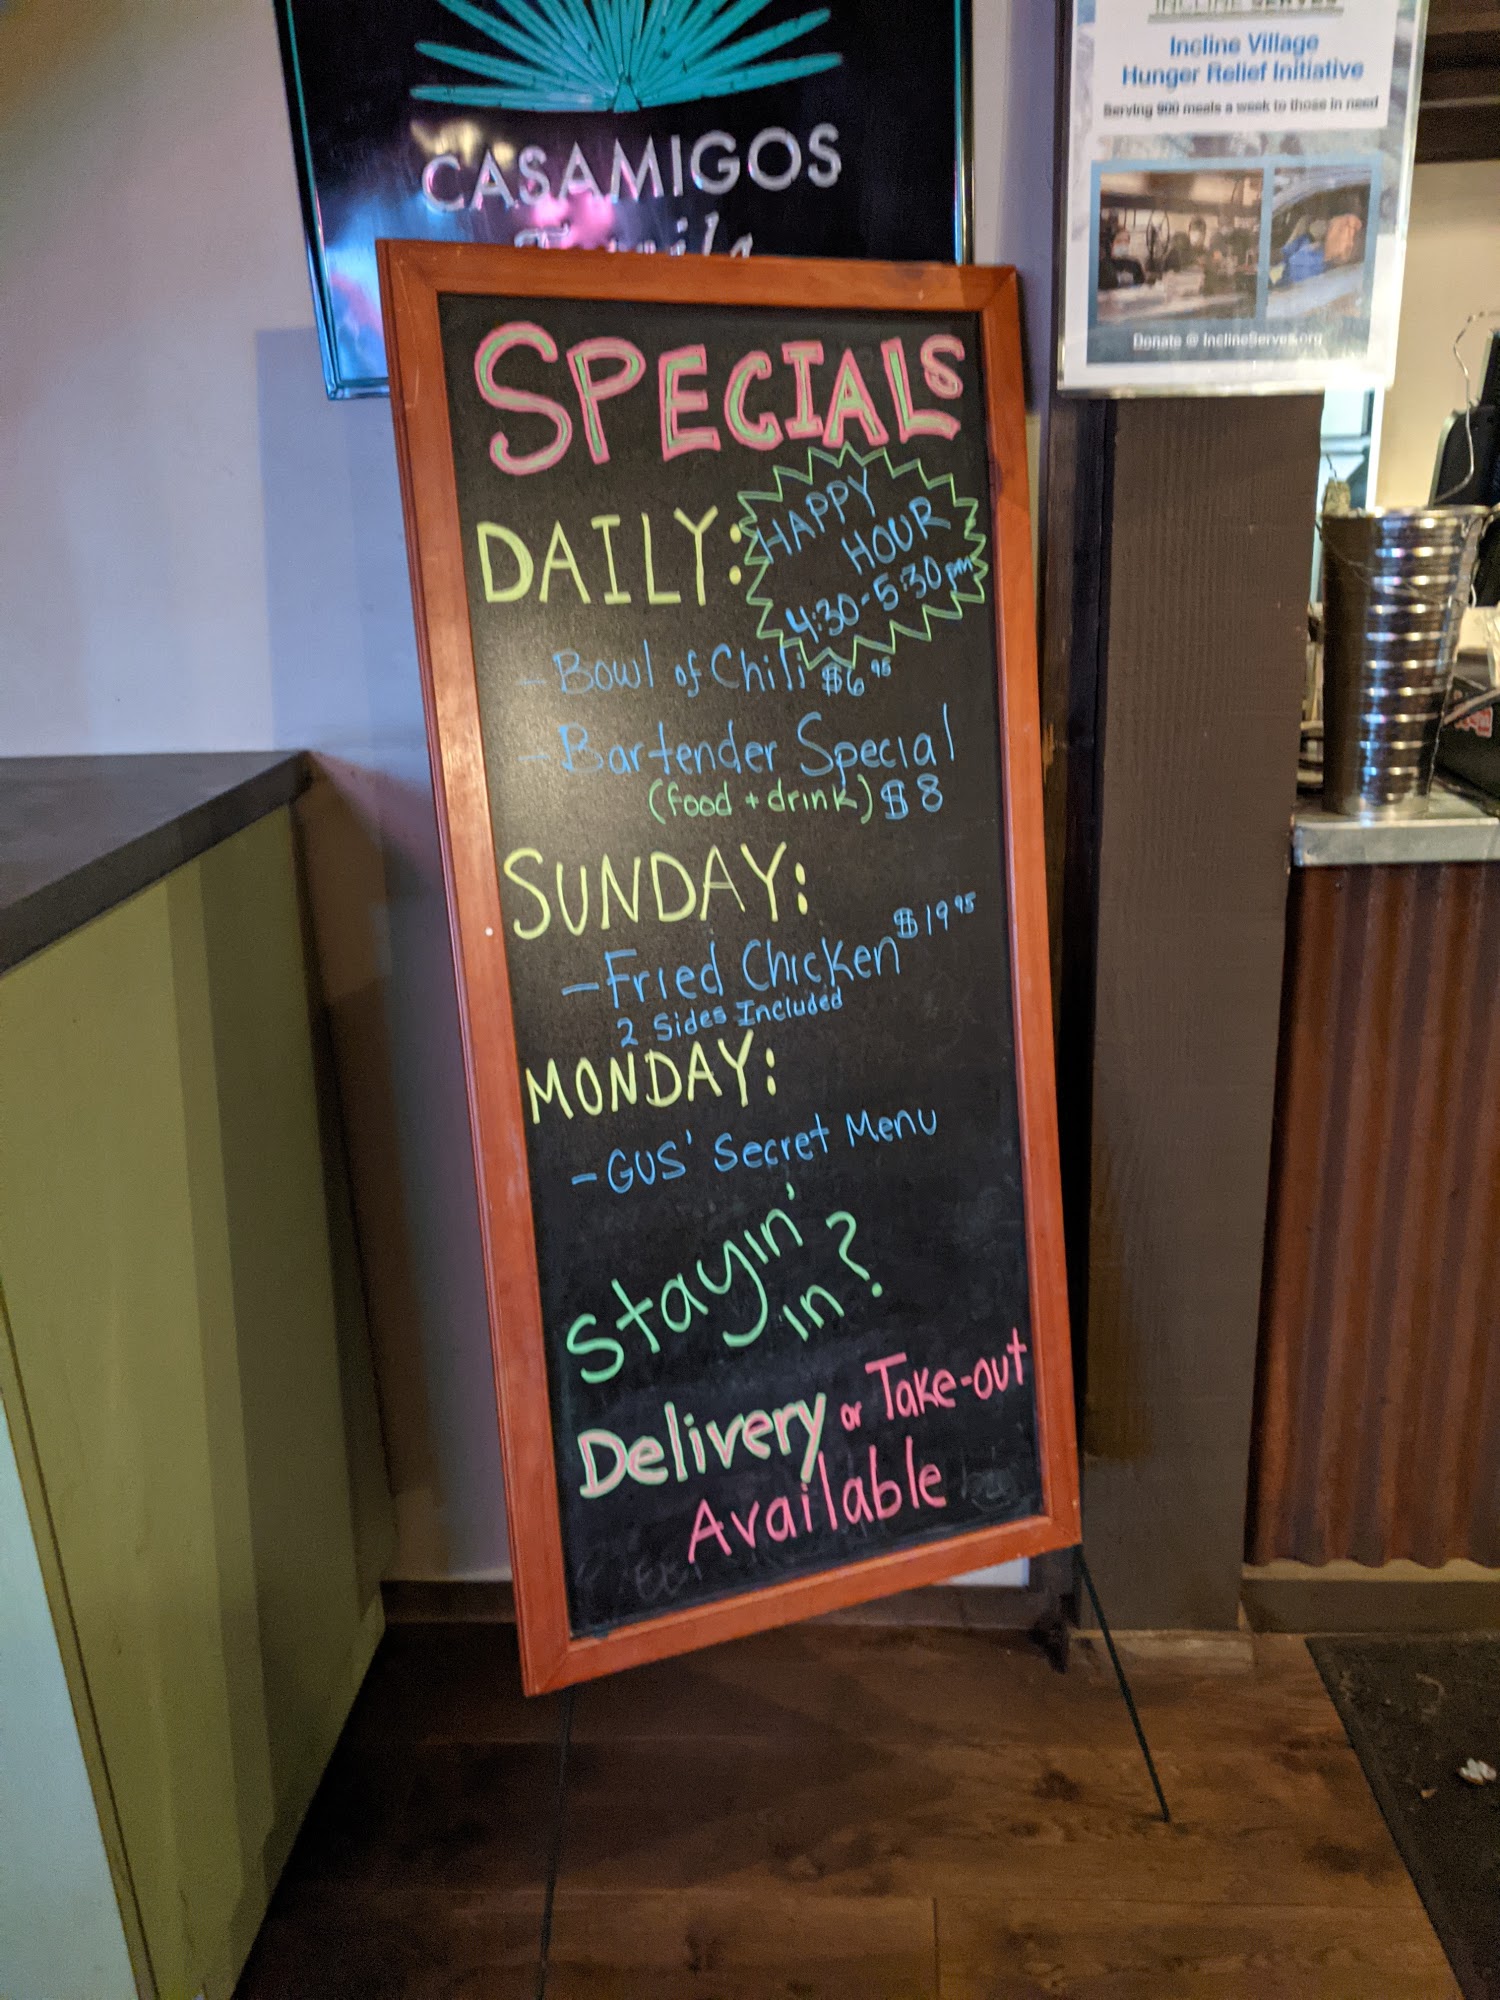 CASAMIGOS
Tequila
INCLINE SERVES
Incline Village
Hunger Relief Initiative
Serving 900 meals a week to those in need
Donate @ InclineServes.org
SPECIALS
DAILY:
HAPPY
HOUR
4:30-5:30pm
- Bowl of Chili $6 95
- Bartender Special
(food + drink) $8
SUNDAY:
- Fried Chicken $19 95
2 Sides Included
MONDAY:
- GUS' Secret Menu
Stayin'
in?
Delivery or Take-out
Available